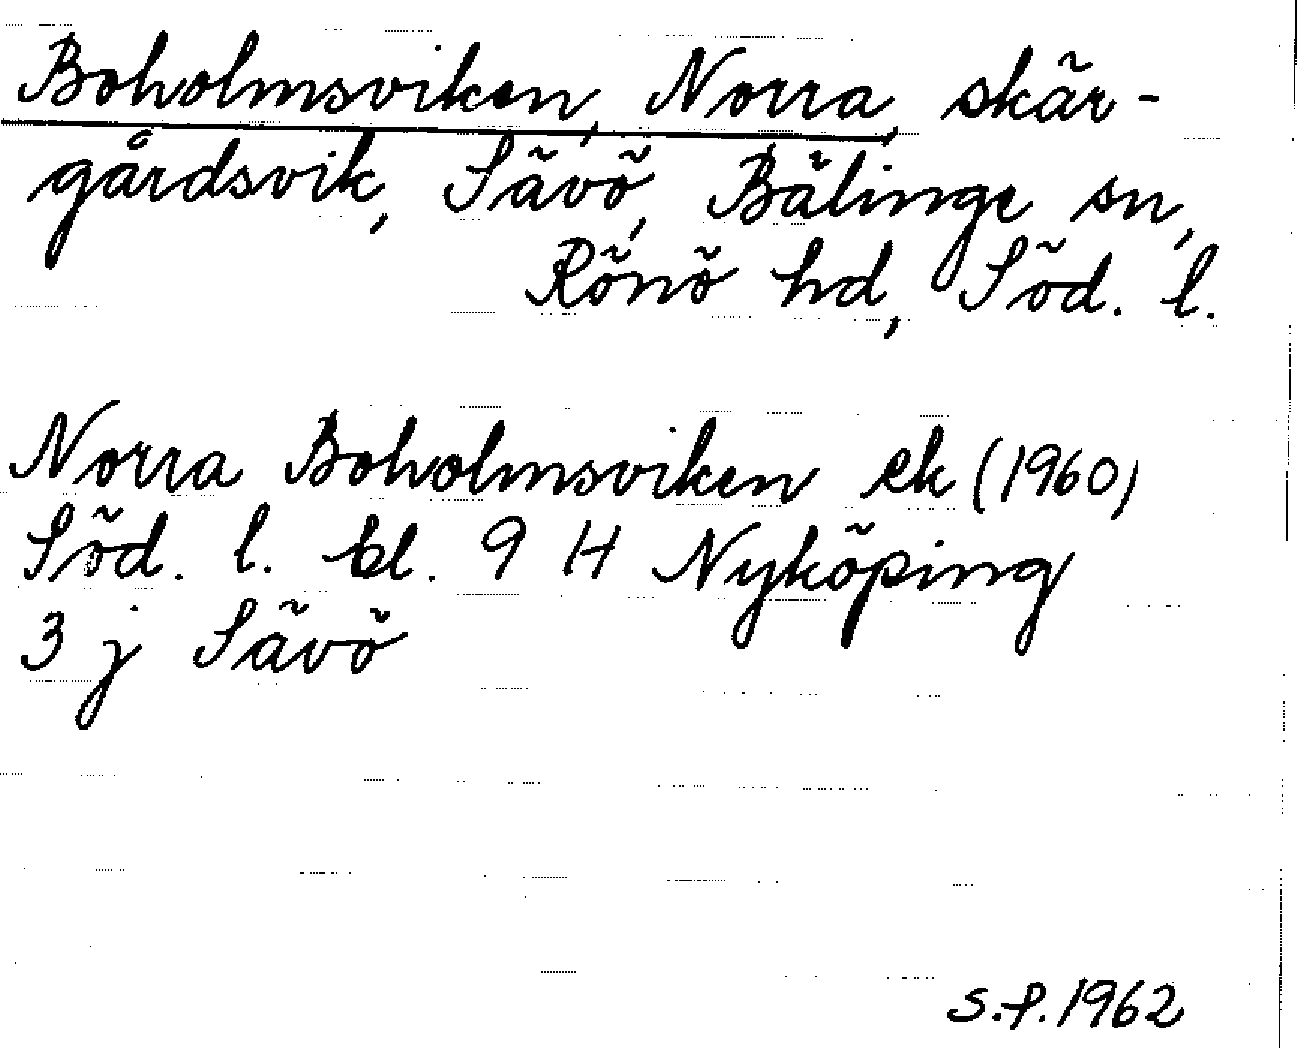 Boholmsviken, Norra, skär-
gårdsvik, Sävö, Bälinge sn,
Rönö hd, Söd. l.
Norra Boholmsviken ek (1960)
Söd. l. bl. 9 H Nyköping
3 j Sävö
S.F. 1962